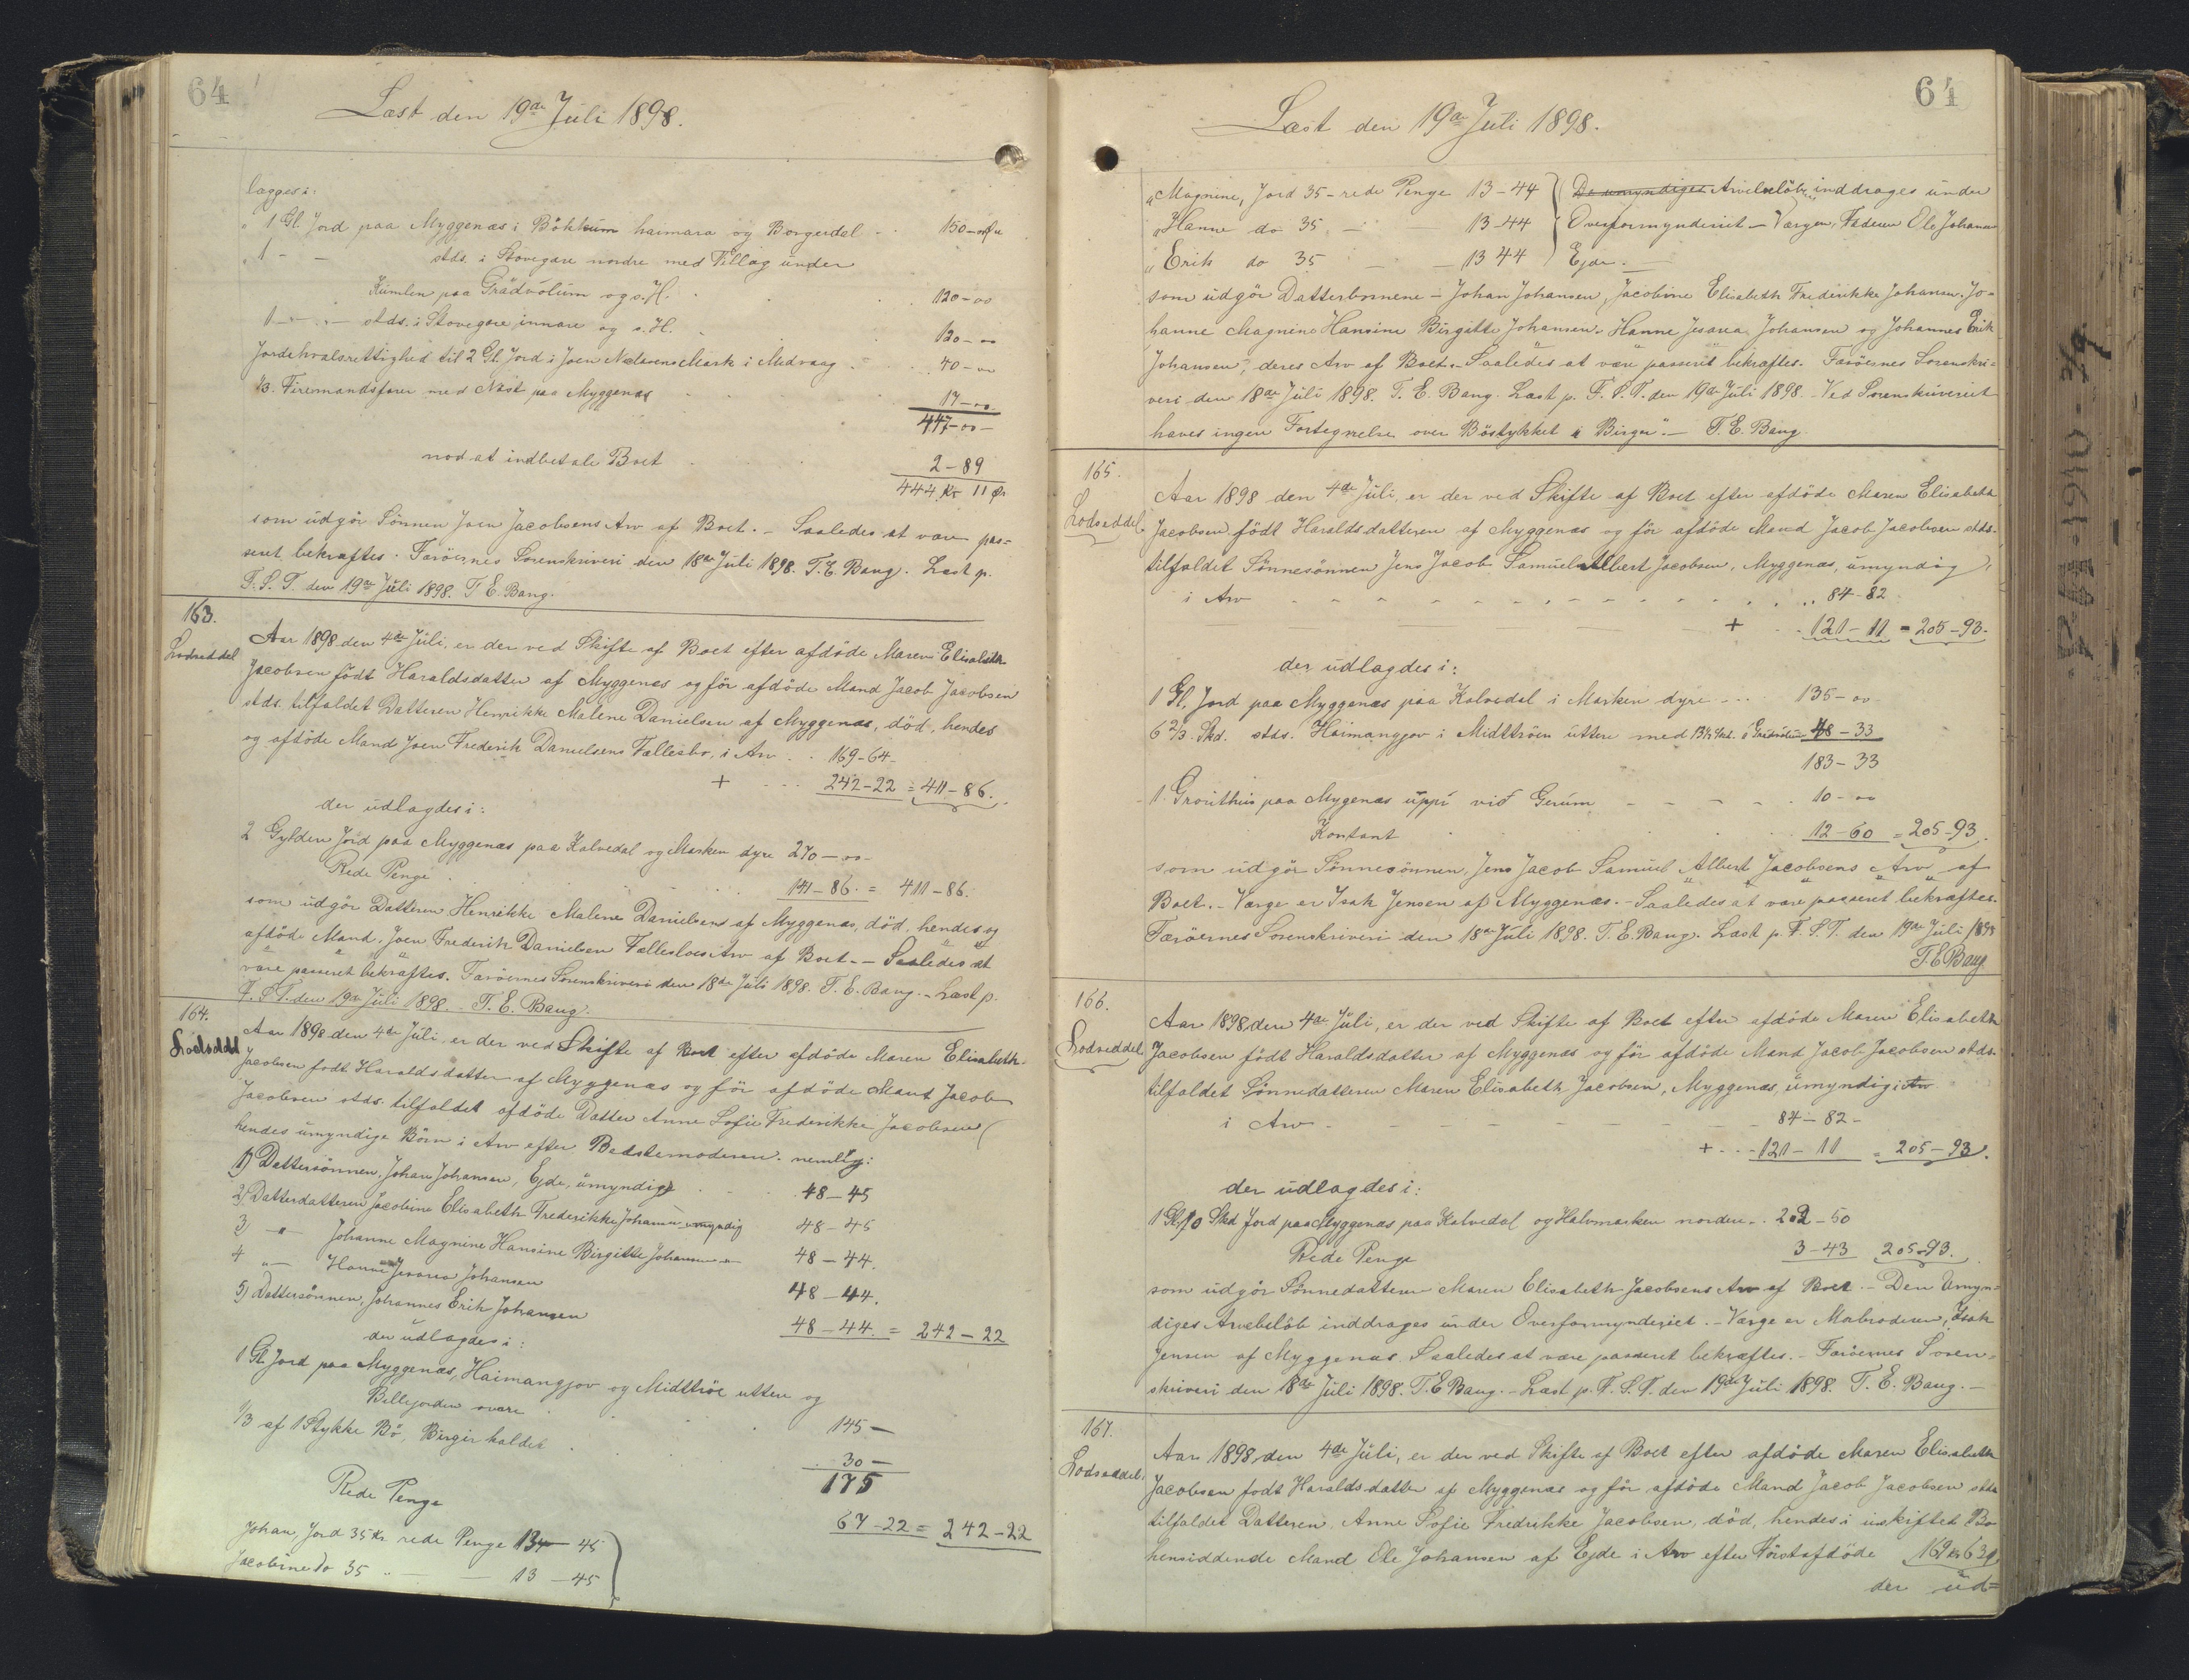 64
Læst den 19de Juli 1898.
lægges i:
" 1 Gl. Jord paa Myggenæs i Bökkum haimara og Borgerdal - - 150 -
" 1 - - stds. i Stovegare nordre med Tillag under
Kumlen paa Grädvolum og s. H. 120 - 00
1 - - stds. i Stovegare innare og s. H. 120 - 00
Jordehvalsrettighed til 2 Gl. Jord i Joen Mark i Midvaag 40 - 00
1/3. Firemandsfarer med Nöst paa Myggenæs 17 - 00
447 - 00 -
mod at indbetale Boet 2 - 89
444 Kr 11 Ør
som udgör Sönnen Joen Jacobsens Arv af Boet. - Saaledes at være pas-
seret bekræftes. Færöernes Sorenskriveri den 18de Juli 1898. T. E. Bang. Læst p.
F. S. T. den 19de Juli 1898. T. E. Bang.
163.
Lodseddel
Aar 1898 den 4de Juli, er der ved Skifte af Boet efter afdöde Maren Elisabeth
Jacobsen födt Haraldsdatter af Myggenæs og för afdöde Mand Jacob Jacobsen
stds. tilfaldet Datteren Henrikke Malene Danielsen af Myggenæs, död, hendes
og afdöde Mand Joen Frederik Danielsens Fællesbo, i Arv . . 169 - 64 -
+ . . . 242 - 22 = 411 - 86.
der udlagdes i:
2 Gylden Jord paa Myggenæs paa Kalvedal og Marken dyre 270 - 00 -
Rede Penge . 141 - 86. = 411 - 86.
som udgör Datteren Henrikke Malene Danielsens af Myggenæs, död, hendes og
afdöde Mand. Joen Frederik Danielsen Fællesboes Arv af Boet. - Saaledes at
være passeret bekræftes. Færöernes Sorenskriveri den 18de Juli 1898. T. E. Bang. - Læst p.
F. S. T. den 19de Juli 1898. . T. E. Bang.
164.
Lodseddel
Aar 1898 den 4de Juli er der ved Skifte af Boet efter afdöde Maren Elisabeth
Jacobsen födt Haraldsdatter af Myggenæs og för afdöde Mand Jacob
Jacobsen stds. tilfaldet afdöde Datter Anne Sofie Frederikke Jacobsen
hendes umyndige Börn i Arv efter Bedstemoderen. nemlig:
1) Dattersönnen, Johan Johansen, Ejde, umyndig . . . 48 - 45
2) Datterdatteren Jacobine Elisabeth Frederikke Johansen umyndig 48 - 45
3) - " - Johanne Magnine Hansine Birgitte Johansen - " - 48 - 44.
4 " - Hanne Johansen 48 - 44.
5) Dattersönnen, Johannes Erik Johansen 48 - 44. = 242 - 22
der udlagdes i:
1 Gl. Jord paa Myggenæs, Haimangjov og Midttröe uttere og
Billejorden ovare . . 145 -
1/3 af 1 Stykke Bö, Birgir kaldet . . 30 -
175
Rede Penge 67 - 22 = 242 - 22
Johan, Jord 35 Kr. rede Penge 13 - 45
Jacobine do 35 . - - 13 - 45
64
Læst den 19de Juli 1898.
" Magnine, Jord 35 - rede Penge 13 - 44 De umyndiges Arvebelöb inddrages under
" Hanne do 35 - 13 - 44 Overformynderiet - Værgen, Faderen Ole Johansen
" Erik do 35 - - 13 44 Ejde. -
som udgör Datterbörnene - Johan Johansen, Jacobine Elisabeth Frederikke Johansen. Jo-
hanne Magnine Hansine Birgitte Johansen. Hanne Johansen og Johannes Erik
Johansen", deres Arv af Boet. - Saaledes at være passeret bekræftes. Færöernes Sorenskri-
veri den 18de Juli 1898. T. E. Bang. Læst p. F. S. T. den 19de Juli 1898. - Ved Sorenskriveriet
haves ingen Fortegnelse over Böstykket i Birger". - T. E. Bang
165.
Lodseddel.
Aar 1898 den 4de Juli, er der ved Skifte af Boet efter afdöde Maren Elisabeth
Jacobsen. födt Haraldsdatteren af Myggenæs og för afdöde Mand Jacob Jacobsen stds.
tilfaldet Sönnesönnen Jens Jacob Samuel Albert Jacobsen, Myggenæs, umyndig,
i Arv - - - - - 84 - 82
+ . . 121 - 11 = 205 - 93 -
der udlagdes i:
1 Gl. Jord paa Myggenæs paa Kalvedal i Marken dyre - - - 135 - 00
6 2/3. Skd. stds. Haimangjov i Midttröen uttere med 13 1/3 Skd. i 48 - 33
183 - 33
1. Grouthus paa Mygenæs uppi vid Gerum - - - - 10 - 00
Kontant . . . 12 - 60 = 205 - 93.
som udgör Sönnesönnen, Jens Jacob Samuel Albert Jacobsens Arv af
Boet. - Værge er Isak Jensen af Myggenæs. - Saaledes at være passeret bekræftes.
Færöernes Sorenskriveri den 18de Juli 1898. T. E. Bang. Læst p. F. S. T. den 19de Juli 1898
T. E. Bang
166.
Lodseddel.
Aar 1898 den 4de Juli, er der ved Skifte af Boet efter afdöde Maren Elisabeth
Jacobsen födt Haraldsdatter af Myggenæs og för afdöde Mand Jacob Jacobsen stds.
tilfaldet Sönnedatteren Maren Elisabeth Jacobsen, Myggenæs, umyndig i Arv
i Arv - - - - - 84 - 82 -
+ - - - 121 - 11 = 205 - 93.
der udlagdes i:
1 Gl. 10 Skd Jord paa Myggenæs paa Kalvedal og Halvmarken norden - . 202 - 50
Rede Penge 3 - 43 205 - 93.
som udgör Sönnedatteren Maren Elisabeth Jacobsens Arv af Boet. - Den Umyn-
diges Arvebelöb inddrages under Overformynderiet. - Værge er Morbroderen, Isak
Jensen af Myggenæs. Saaledes at være passeret bekræftes. - Færöernes Soren-
skriveri den 18de Juli 1898. T. E. Bang. - Læst p. F. S. T. den 19de Juli 1898. T. E. Bang. -
167.
Lodseddel.
Aar 1898 den 4de Juli, er der ved Skifte af Boet efter afdöde Maren Elisabeth
Jacobsen födt Haraldsdatter af Myggenæs og för afdöde Mand Jacob Jacobsen stds
tilfaldet Datteren, Anne Sofie Fredrikke Jacobsen, död, hendes i uskiftet Bo
hensiddende Mand Ole Johansen af Ejde i Arv efter Förstafdöde 169 Kr 63
der ud=